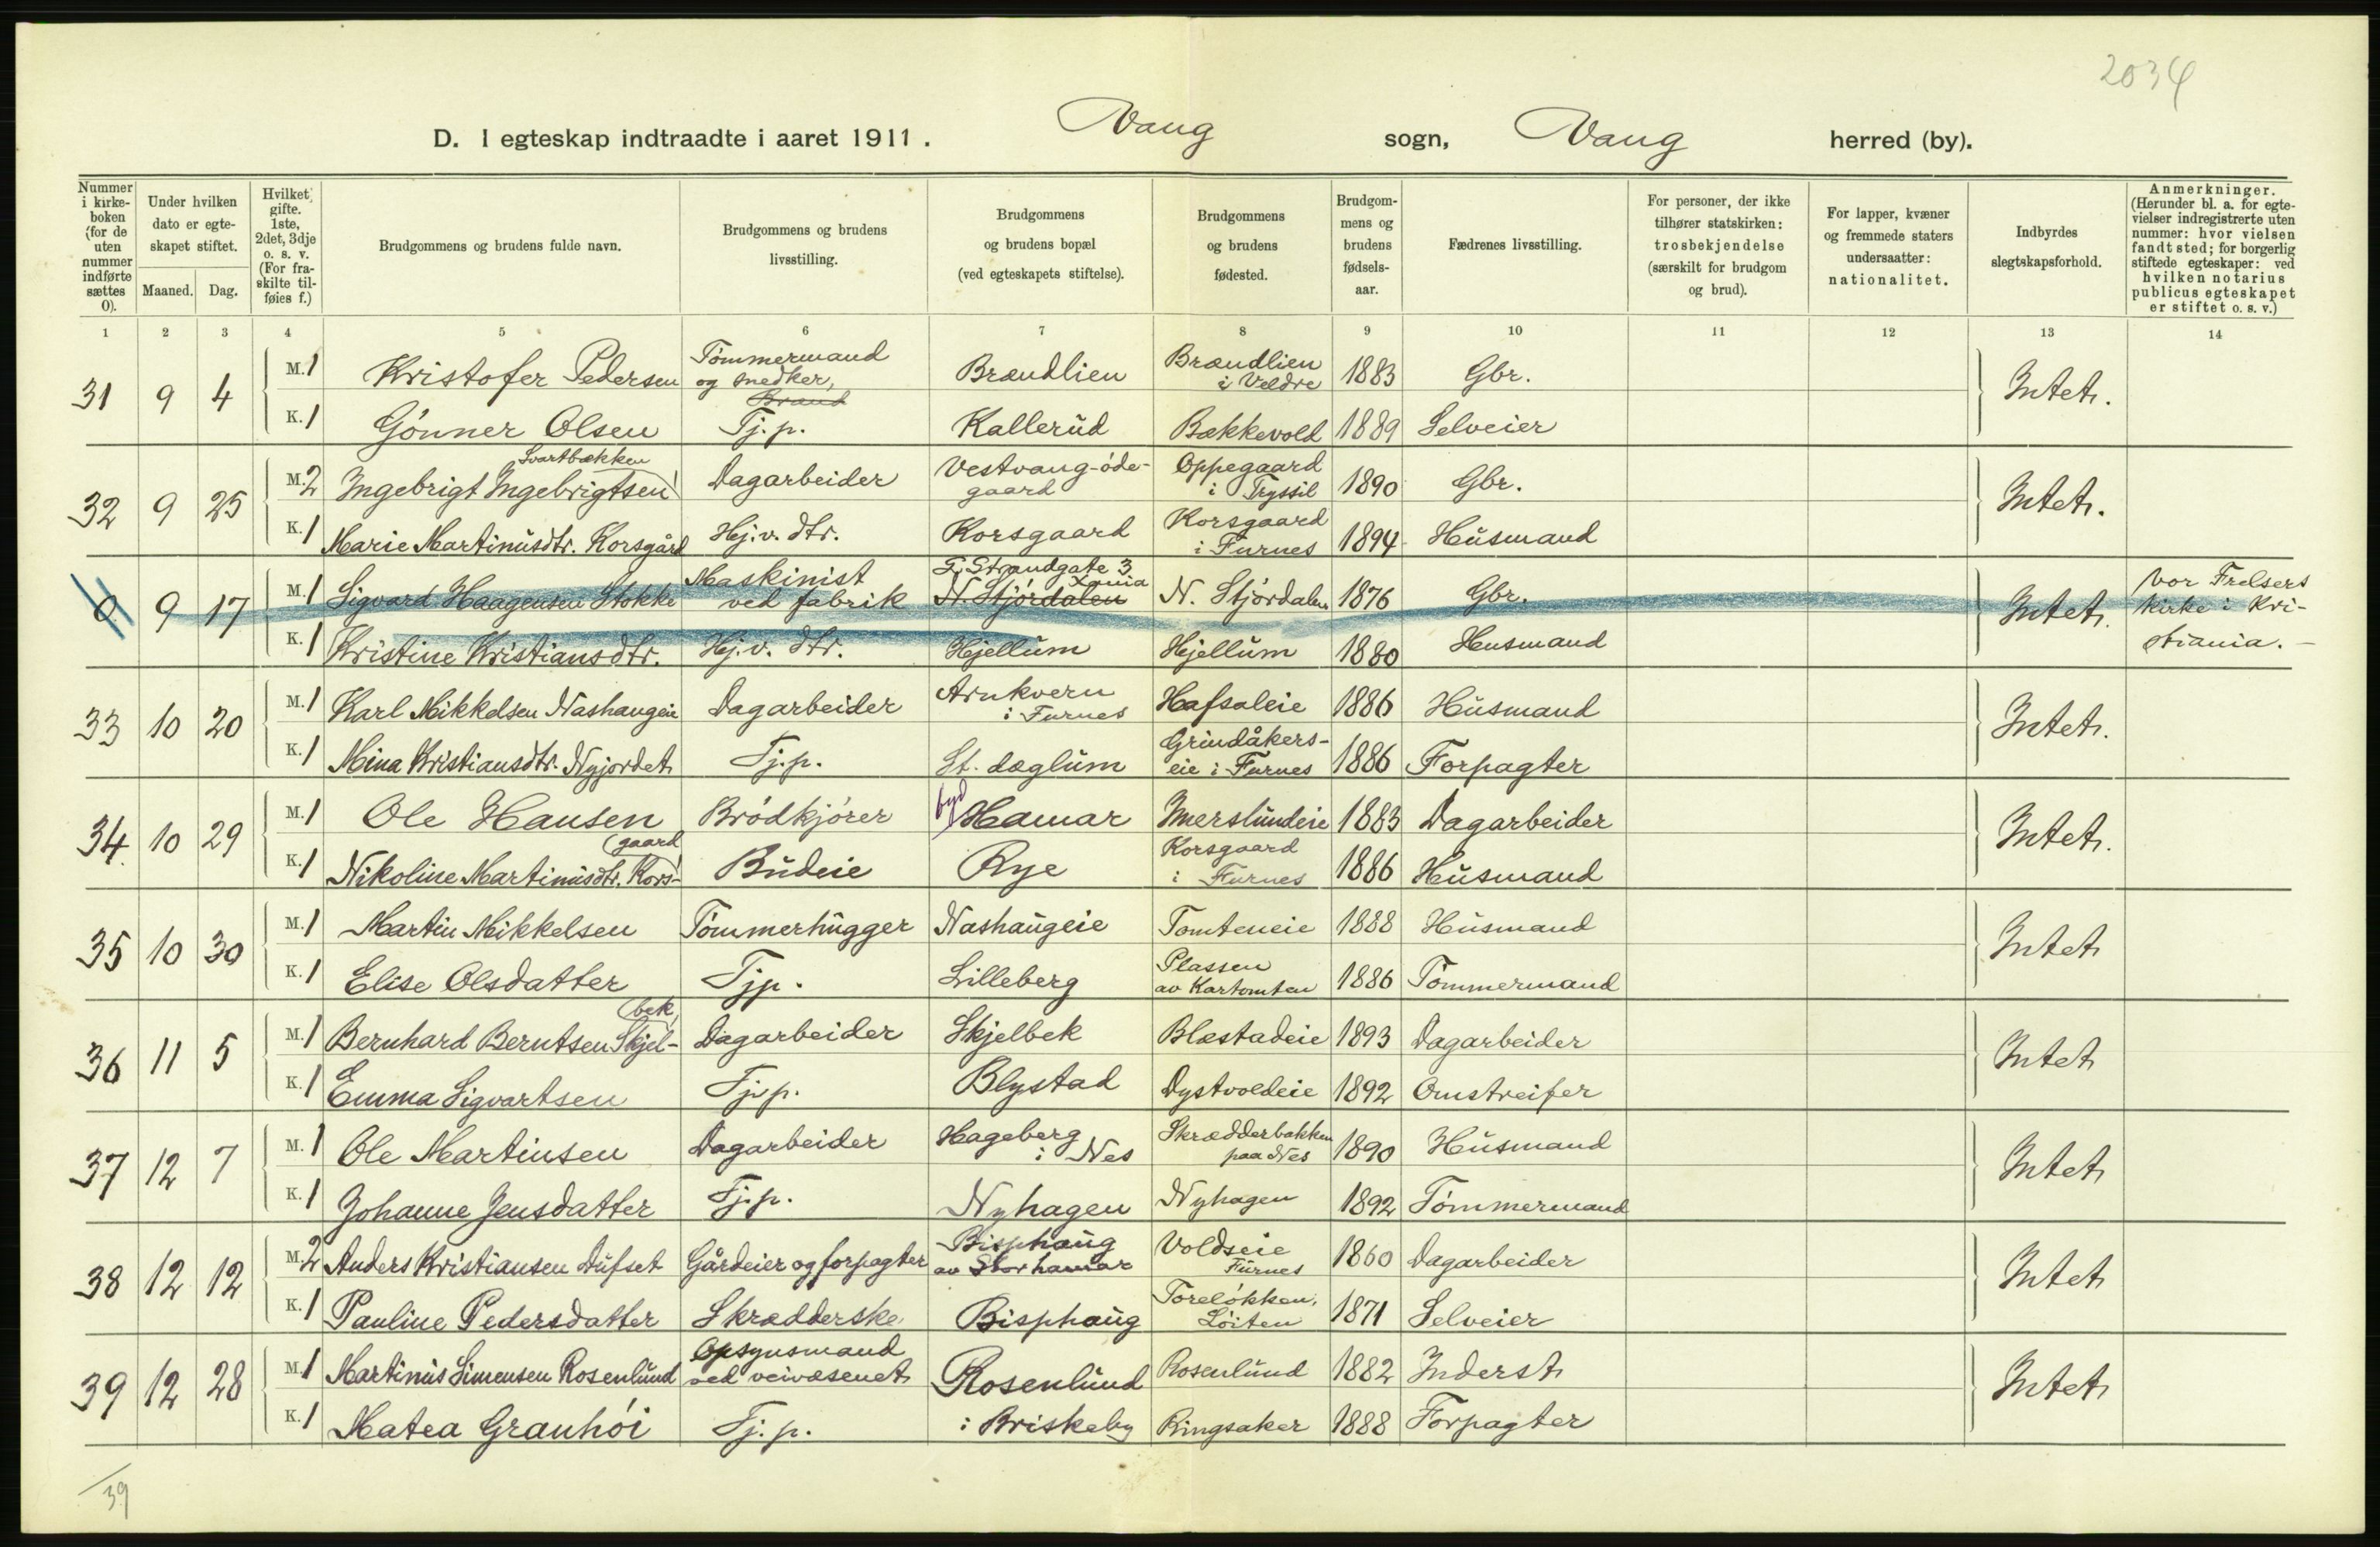 2034
D. I egteskap indtraadte i aaret 1911. Vang sogn, Vang herred (by).
Nummer i kirkeboken (for de uten nummer indførte sættes 0).
Under hvilken dato er egteskapet stiftet.
Maaned. Dag.
Hvilket gifte. 1ste, 2det, 3dje o. s. v. (For fraskilte tilføies f.)
Brudgommens og brudens fulde navn.
Brudgommens og brudens livsstilling.
Brudgommens og brudens bopæl (ved egteskapets stiftelse).
Brudgommens og brudens fødested.
Brudgommens og brudens fødselsaar.
Fædrenes livsstilling.
For personer, der ikke tilhører statskirken: trosbekjendelse (særskilt for brudgom og brud).
For lapper, kvæner og fremmede staters undersaatter: nationalitet.
Indbyrdes slegtskapsforhold.
Anmerkninger. (Herunder bl. a. for egtevielser indregistrerte uten nummer: hvor vielsen fandt sted; for borgerlig stiftede egteskaper: ved hvilken notarius publicus egteskapet er stiftet o. s. v.)
1 2 3 4 5 6 7 8 9 10 11 12 13 14
31 9 4 M. 1 Kristofer Pedersen Tømmermand og snedker, Brændlien Brændlien i Veldre 1883 Gbr. Intet.
K. 1 Gönner Olsen Tj. p. Kallerud Bækkevold 1889 Selveier
32 9 25 M. 2 Ingebrigt Ingebrigtsen Svartbækken Dagarbeider Vestvang-ødegaard Oppegaard i Tryssil 1890 Gbr. Intet.
K. 1 Marie Martinusdtr. Korsgård Hj. v. dtr. Korsgaard Korsgaard i Furnes 1894 Husmand
0 9 17 M. 1 Sigvard Haagensen Stokke Maskinist ved fabrik G. Strandgate 3 Xania N. Stjördalen N. Stjördalen 1876 Gbr. Intet. Vor Frelsers kirke i Kristiania. –
K. 1 Kristine Kristiansdtr. Hj. v. dtr. Hjellum Hjellum 1880 Husmand
33 10 20 M. 1 Karl Mikkelsen Nashaugeie Dagarbeider Arnkvern i Furnes Hafsaleie 1886 Husmand Intet.
K. 1 Mina Kristiansdtr. Nyjordet Tj. p. St. døglum Grindåkerseie i Furnes 1886 Forpagter
34. 10 29 M. 1 Ole Hansen Brødkjører byd Hamar Imerslundeie 1883 Dagarbeider Intet.
K. 1 Nikoline Martinusdtr. Korsgaard Budeie Rye Korsgaard i Furnes 1886 Husmand
35 10 30 M. 1 Martin Mikkelsen Tømmerhugger Nashaugeie Tomteneie 1888 Husmand Intet
K. 1 Elise Olsdatter Tjp. Lilleberg Plassen av Kartomten 1886 Tømmermand
36 11 5 M. 1 Bernhard Berntsen Skjelbek Dagarbeider Skjelbek Blæstadeie 1893 Dagarbeider Intet
K. 1 Emma Sigvartsen Tjp. Blystad Dystvoldeie 1892 Omstreifer
37 12 7 M. 1 Ole Martinsen Dagarbeider Hageberg i Nes Skrædderbakken paa Nes 1890 Husmand Intet
K. 1 Johanne Jensdatter Tj. p. Nyhagen Nyhagen 1892 Tømmermand
38 12 12 M. 2 Anders Kristiansen Dufset Gårdeier og forpagter Bisphaug av Storhamar Voldseie Furnes 1860 Dagarbeider Intet
K. 1 Pauline Pedersdatter Skrædderske Bisphaug Toreløkken, Löiten 1871 Selveier
39 12 28 M. 1 Martinus Simensen Rosenlund Opsynsmand ved veivæsenet Rosenlund Rosenlund 1882 Inderst Intet
K. 1 Matea Granhöi Tj. p. i Briskeby Ringsaker 1888 Forpagter
39